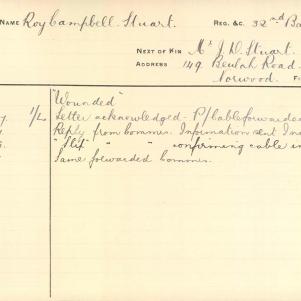 NAME Roy Campbell Stuart. REG. &C. 32nd Ba
NEXT OF KIN Mr J. D. Stuart.
ADDRESS 149 Beulah Road
Norwood.
"Wounded"
1/L Letter acknowledged - P/L cable forwarded
Reply from Commrs. Information sent
"Slip" " " confirming cable in
Same forwarded Commrs.